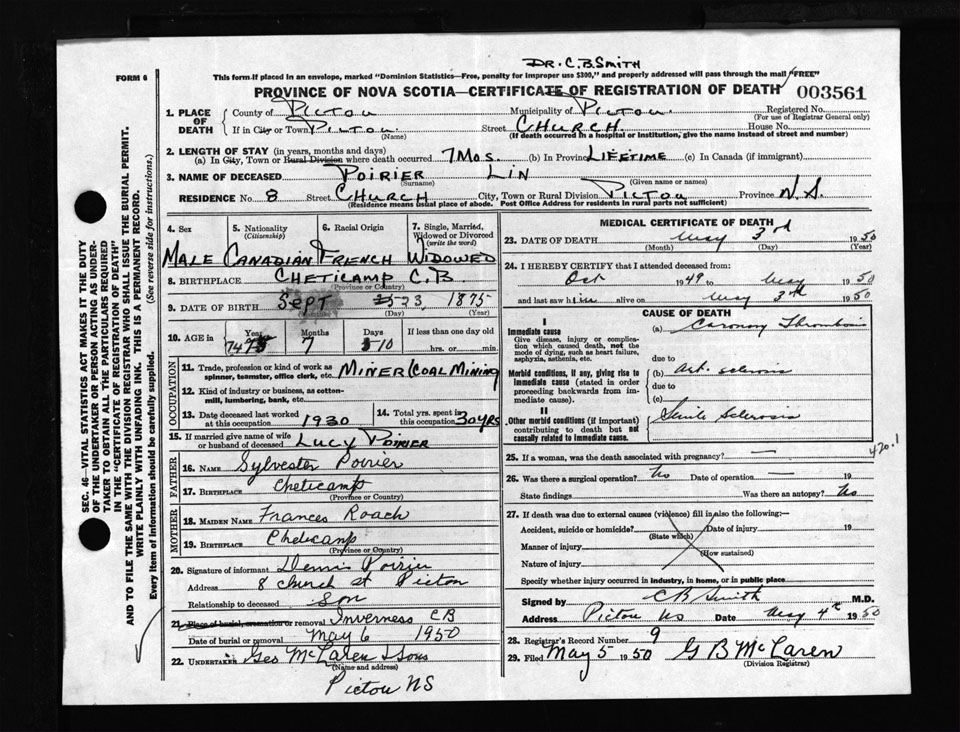 DR. C.B. SMITH
FORM 6
This form if placed in an envelope, marked "Dominion Statistics—Free, penalty for improper use $300," and properly addressed will pass through the mail "FREE"
PROVINCE OF NOVA SCOTIA—CERTIFICATE OF REGISTRATION OF DEATH 003561
1. PLACE OF DEATH
County of PICTOU Municipality of PICTOU. Registered No.
(For use of Registrar General only)
If in City or Town PICTOU. Street CHURCH. House No.
(Name) (If death occurred in a hospital or institution, give the name instead of street and number)
2. LENGTH OF STAY (in years, months and days)
(a) In City, Town or Rural Division where death occurred 7 MOS. (b) In Province LIFETIME (c) In Canada (if immigrant)
3. NAME OF DECEASED POIRIER LIN
(Surname) (Given name or names)
RESIDENCE No. 8 Street CHURCH City, Town or Rural Division PICTOU Province N.S.
(Residence means usual place of abode. Post Office Address for residents in rural parts not sufficient)
4. Sex 5. Nationality (Citizenship) 6. Racial Origin 7. Single, Married, Widowed or Divorced (write the word)
MALE CANADIAN FRENCH WIDOWED
8. BIRTHPLACE CHETICAMP C.B.
(Province or Country)
9. DATE OF BIRTH SEPT 23, 1875
(Day) (Year)
10. AGE in Years Months Days If less than one day old
74 7 10 hrs. or min.
OCCUPATION
11. Trade, profession or kind of work as spinner, teamster, office clerk, etc. MINER (COAL MINING
12. Kind of industry or business, as cotton-mill, lumbering, bank, etc.
13. Date deceased last worked at this occupation 1930 14. Total yrs. spent in this occupation 30 YRS
15. If married give name of wife or husband of deceased LUCY POIRIER
FATHER
16. NAME Sylvester Poirier
17. BIRTHPLACE Cheticamp
(Province or Country)
MOTHER
18. MAIDEN NAME Frances Roach
19. BIRTHPLACE Cheticamp
(Province or Country)
20. Signature of informant Dennis Poirier
Address 8 church st Pictou
Relationship to deceased Son
21. Place of burial, cremation or removal Inverness CB
Date of burial or removal May 6 1950
22. UNDERTAKER Geo McLaren & Sons
(Name and address)
Pictou NS
MEDICAL CERTIFICATE OF DEATH
23. DATE OF DEATH May 3rd 1950
(Month) (Day) (Year)
24. I HEREBY CERTIFY that I attended deceased from:
Oct 1949 to May 1950
and last saw him alive on May 3rd 1950
CAUSE OF DEATH
I
Immediate cause (a) Coronary Thrombosis
Give disease, injury or complication which caused death, not the mode of dying, such as heart failure, asphyxia, asthenia, etc.
due to
Morbid conditions, if any, giving rise to immediate cause (stated in order proceeding backwards from immediate cause).
(b) Art. sclerosis
due to
(c)
II
Other morbid conditions (if important) contributing to death but not causally related to immediate cause.
Senile Sclerosis
420.1
25. If a woman, was the death associated with pregnancy? —
26. Was there a surgical operation? No Date of operation — 19
State findings Was there an autopsy? No
27. If death was due to external causes (violence) fill in also the following:—
Accident, suicide or homicide? Date of injury 19
(State which)
Manner of injury
(How sustained)
Nature of injury
Specify whether injury occurred in industry, in home, or in public place
Signed by CB Smith M.D.
Address Pictou NS Date May 4th 1950
28. Registrar's Record Number 9
29. Filed May 5 1950 G B McLaren
(Division Registrar)
SEC. 46—VITAL STATISTICS ACT MAKES IT THE DUTY
OF THE UNDERTAKER OR PERSON ACTING AS UNDERTAKER TO OBTAIN ALL THE PARTICULARS REQUIRED
IN THE "CERTIFICATE OF REGISTRATION OF DEATH"
AND TO FILE THE SAME WITH THE DIVISION REGISTRAR WHO SHALL ISSUE THE BURIAL PERMIT.
WRITE PLAINLY WITH UNFADING INK. THIS IS A PERMANENT RECORD.
Every item of information should be carefully supplied. (See reverse side for instructions.)